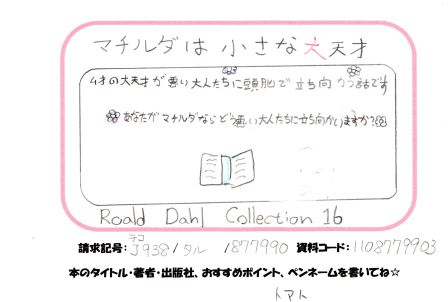 マチルダは小さな大天才
ムオの大天才が悪い大人たちに頭脳で立ち向かう話です
あなたがマチルダならどう悪い大人たちに立ち向かいますか?
Roald Dahl Collection 16
テコ
請求記号: J938 / タル / 1877990 資料コード: 1108779903
本のタイトル・著者・出版社、おすすめポイント、ペンネームを書いてね☆
トマト